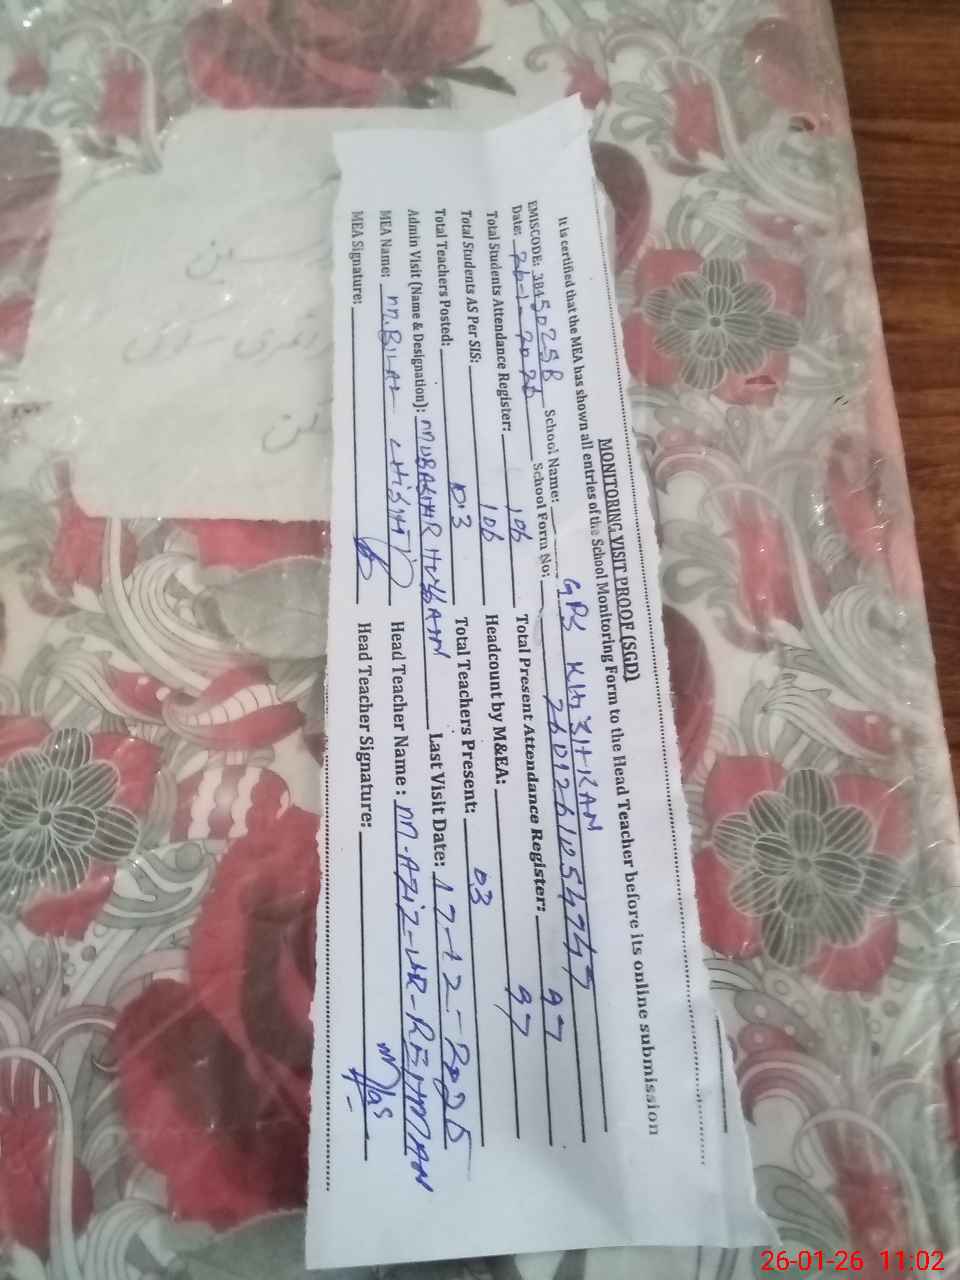 MONITORING VISIT PROOF (SGD)
It is certified that the MEA has shown all entries of the School Monitoring Form to the Head Teacher before its online submission
EMISCODE: 38450258 School Name: GPS KHISHKAN
Date: 26-1-2026 School Form No: 260126105474
Total Students Attendance Register: 106 Total Present Attendance Register: 97
Total Students AS Per SIS: 106 Headcount by M&EA: 97
Total Teachers Posted: 03 Total Teachers Present: 03
Admin Visit (Name & Designation): MUBASHAR HUSSAIN Last Visit Date: 17-12-2025
MEA Name: M.BILAL CHISHTI Head Teacher Name: M.AZIZ-UR-REHMAN
MEA Signature: Head Teacher Signature:
26-01-26 11:02